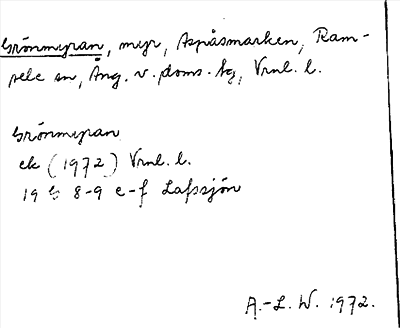 Grönmyran, myr, Aspåsmarken, Ram-
sele sn, Ång. v. doms. tg, Vrnl. l.
Grönmyran
ek (1972) Vrnl. l.
19 G 8-9 e-f Lafssjön
A.-L. W. 1972.